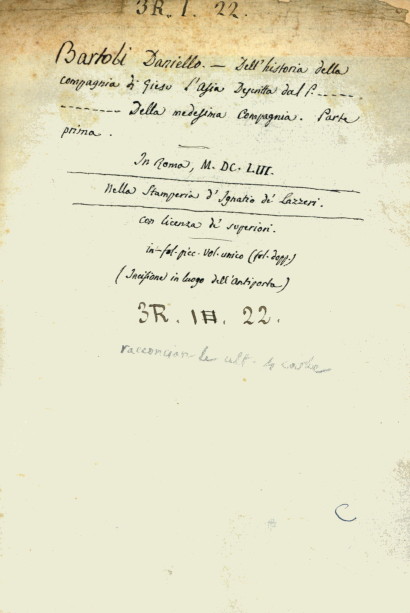 3R. I. 22.
Bartoli Daniello. — Dell'historia della
compagnia di Giesu l'Asia Descritta dal P. - - - - -
- - - - - - - - Della medesima Compagnia. Parte
prima.
In Roma, M. DC. LIII.
Nella Stamperia d'Ignatio de' Lazzeri.
con licenza de' superiori.
in-fol-picc-vol-unico (fol. dopp.)
(Incisione in luogo dell'Antiporta)
3R. 22.
le ult. 4 carte
C